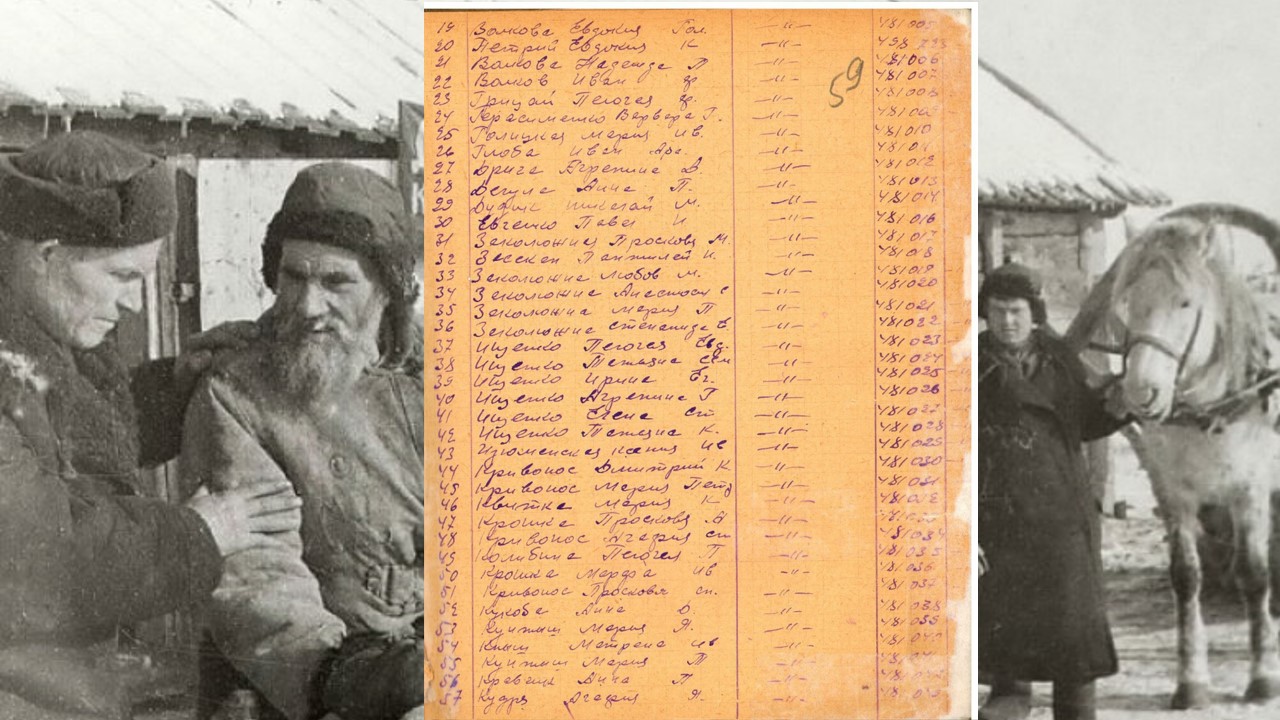 19 Волкова Евдокия Пол. —"— 481005
20 Петрик Евдокия К —"— 498
21 Волкова Надежда П —"— 481006
22 Волков Иван гр —"— 481007
23 Грицай Пелагея гр. —"— 481008
59
24 Герасименко Варвара Г. —"— 481009
25 Голицкая Мария Ив. —"— 481010
26 Глоба Иван —"— 481011
27 Агрепина Д. —"— 481012
28 Дегула Анна П. —"— 481013
29 Дудник Николай М. —"— 481014
30 Евченко Павел И —"— 481016
31 Проскова М. —"— 481017
32 Пантилей И. —"— 481018
33 Любов М. —"— 481019
34 —"— 481020
35 Мария П —"— 481021
36 Степанида Е. —"— 481022
37 Ищенко Пелагея Евд. —"— 481023
38 Ищенко Татьяна Сем —"— 481024
39 Ищенко Ирина Ег. —"— 481025
40 Ищенко Агрепина Г —"— 481026
41 Ищенко Елена Ст —"— 481027
42 Ищенко Татьяна К. —"— 481028
43 Изюменская Ксения Ив —"— 481029
44 Кривонос Дмитрий К —"— 481030
45 Кривонос Мария Петр —"— 481031
46 Квитка Мария К —"— 481032
47 Крошка Проскова А —"—
48 Кривонос Агафия Ст —"— 481034
49 Колибина Пелагея П —"— 481035
50 Крошка Марфа Ив —"— 481036
51 Кривонос Просковья Сп. —"— 481037
52 Анна Д. —"— 481038
Мария Я. —"— 481039
Матрена Ив —"— 481040
Мария П —"— 481041
56 Кравчик Анна П —"—
57 Кудря Агафия Я. —"—